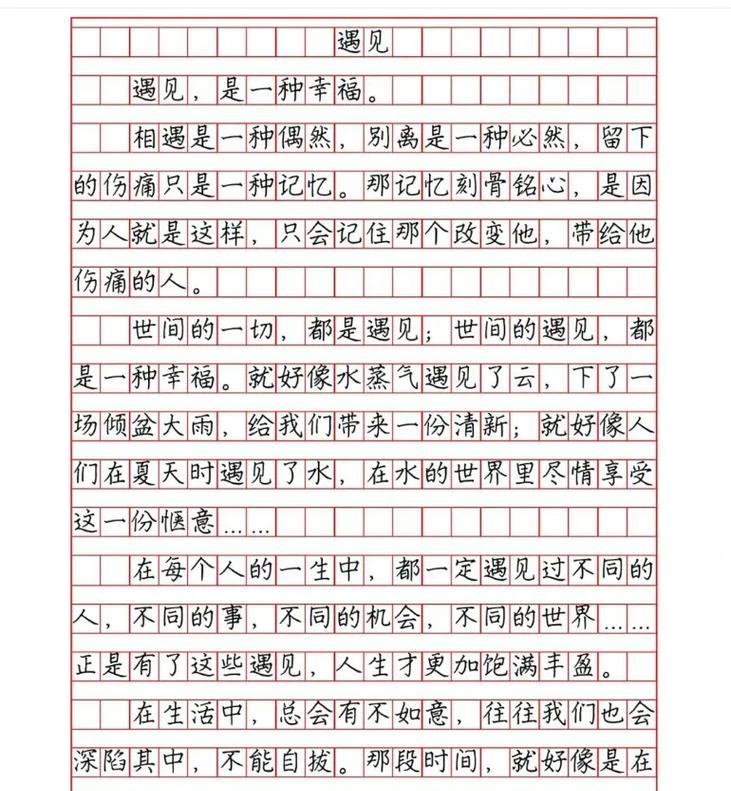 遇见
遇见，是一种幸福。
相遇是一种偶然，别离是一种必然，留下
的伤痛只是一种记忆。那记忆刻骨铭心，是因
为人就是这样，只会记住那个改变他，带给他
伤痛的人。
世间的一切，都是遇见；世间的遇见，都
是一种幸福。就好像水蒸气遇见了云，下了一
场倾盆大雨，给我们带来一份清新；就好像人
们在夏天时遇见了水，在水的世界里尽情享受
这一份惬意……
在每个人的一生中，都一定遇见过不同的
人，不同的事，不同的机会，不同的世界……
正是有了这些遇见，人生才更加饱满丰盈。
在生活中，总会有不如意，往往我们也会
深陷其中，不能自拔。那段时间，就好像是在